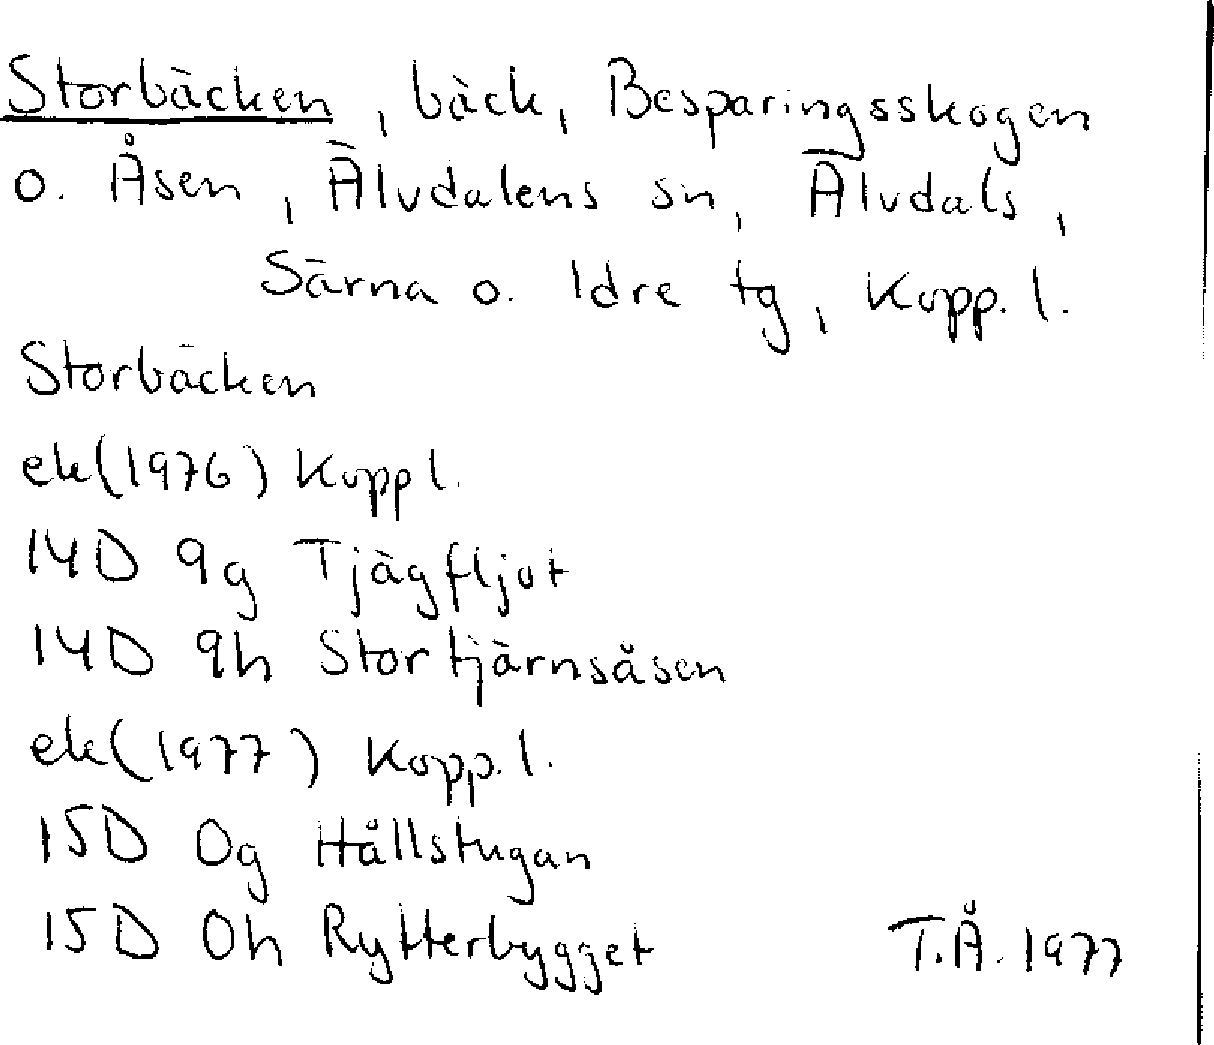 Storbäcken, bäck, Besparingsskogen
o. Åsen, Älvdalens sn, Älvdals,
Särna o. Idre tg, Kopp. l.
Storbäcken
ek(1976) Kopp l.
14D 9g Tjägfljot
14D 9h Stortjärnsåsen
ek(1977) Kopp. l.
15D 0g Hållstugan
15D 0h Rytterbygget
T.Å. 1977